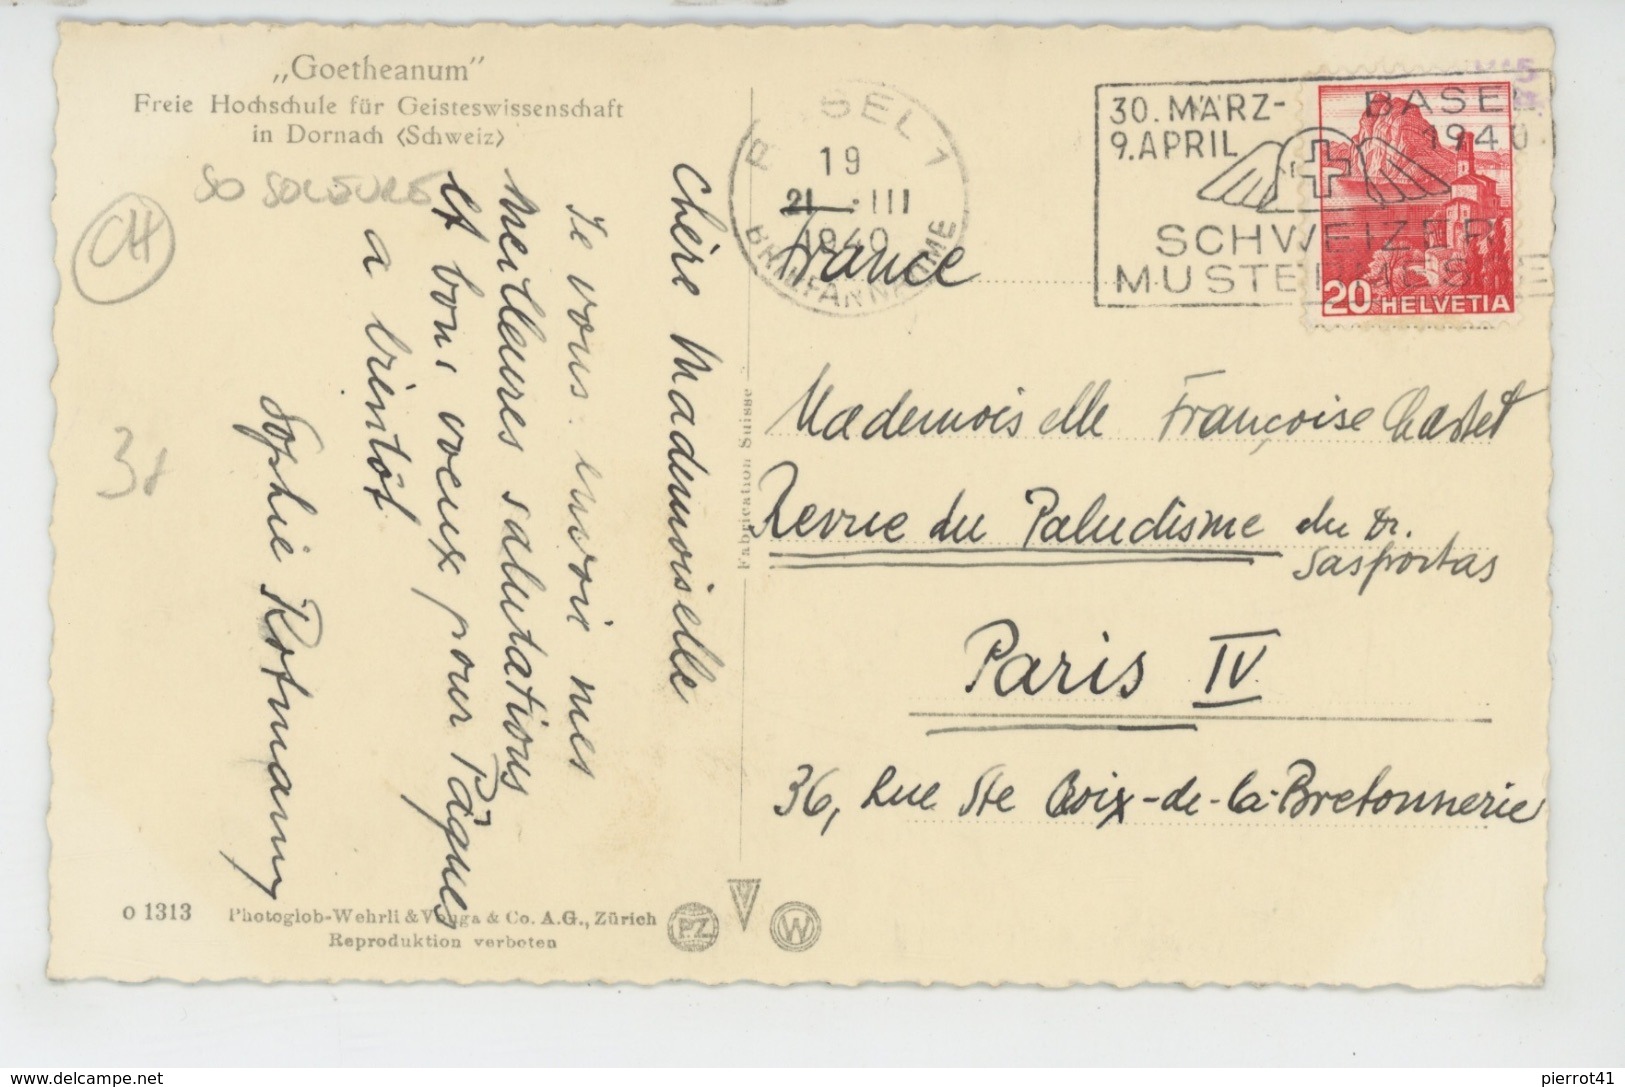 „Goetheanum"
Freie Hochschule für Geisteswissenschaft
in Dornach (Schweiz)
SO SOLEURE
CH
Chère Mademoiselle
Je vous envoie mes
meilleures salutations
et bons voeux pour Pâques
a bientôt
Sophie Rotmann
BASEL 1
19
21 · III
1940
BRIEFANNAHME
30. MÄRZ-
9. APRIL
BASEL
1940
SCHWEIZER
MUSTERMESSE
20 HELVETIA
France
Mademoiselle Françoise Castet
Revue du Paludisme du Dr.
Sasportas
Paris IV
36, Rue Ste Croix-de-la-Bretonnerie
Fabrication Suisse
o 1313
Photoglob-Wehrli & Vouga & Co. A.G., Zürich
Reproduktion verboten
P.Z
V
W
delcampe.net
pierrot41